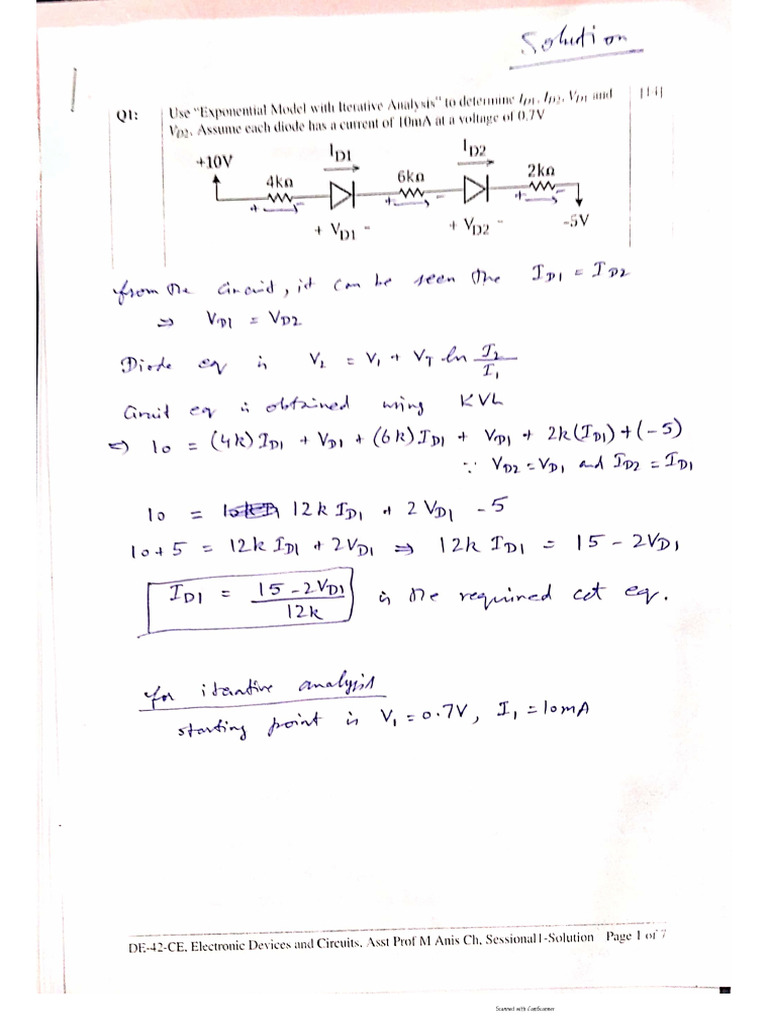 Solution
Q1: Use "Exponential Model with Iterative Analysis" to determine I_D1, I_D2, V_D1 and [14]
V_D2. Assume each diode has a current of 10mA at a voltage of 0.7V
+10V I_D1 I_D2
4kΩ 6kΩ 2kΩ
+ - + - + -
+ V_D1 - + V_D2 - -5V
from the circuit, it can be seen the I_D1 = I_D2
⇒ V_D1 = V_D2
Diode eq is V_2 = V_1 + V_T ln I_2/I_1
Circuit eq is obtained using KVL
⇒ 10 = (4k) I_D1 + V_D1 + (6k) I_D1 + V_D1 + 2k(I_D1) + (-5)
∵ V_D2 = V_D1 and I_D2 = I_D1
10 = 12k I_D1 + 2 V_D1 - 5
10+5 = 12k I_D1 + 2V_D1 ⇒ 12k I_D1 = 15 - 2V_D1
I_D1 = 15 - 2V_D1 / 12k is the required cct eq.
for iterative analysis
starting point is V_1 = 0.7V, I_1 = 10mA
DE-42-CE, Electronic Devices and Circuits, Asst Prof M Anis Ch, Sessional1-Solution Page 1 of 7
Scanned with CamScanner